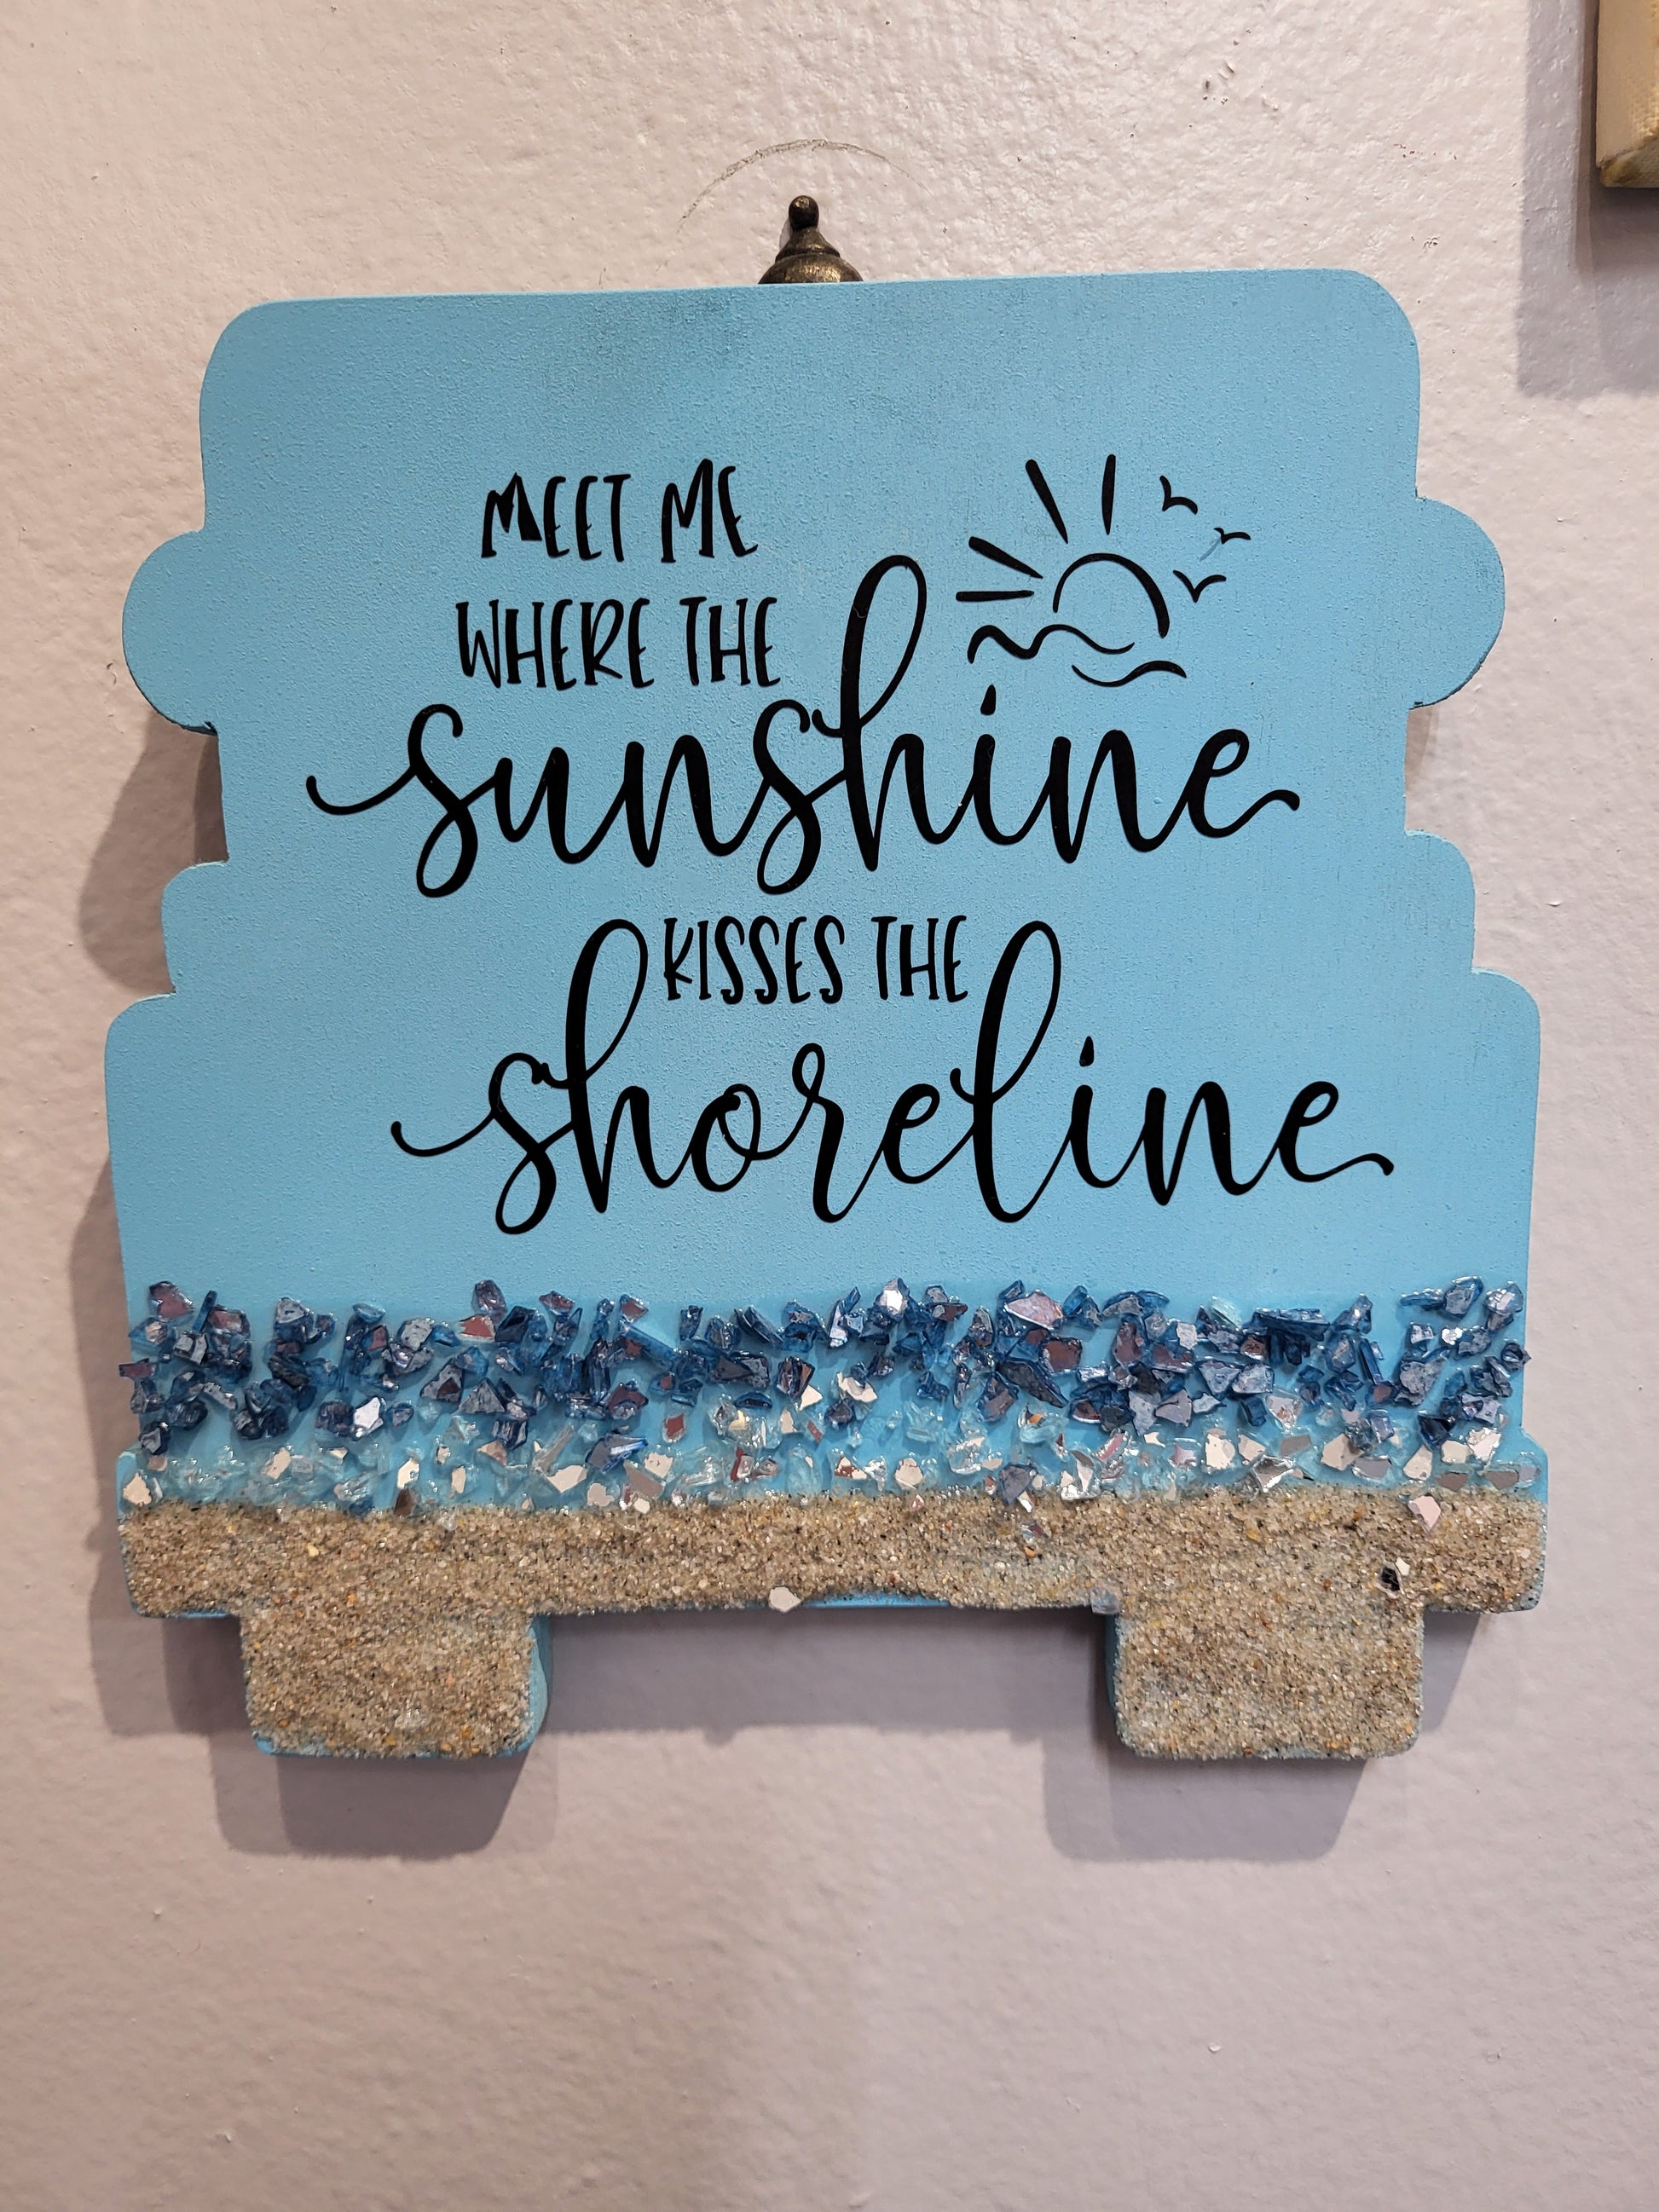 MEET ME
WHERE THE
sunshine
KISSES THE
shoreline